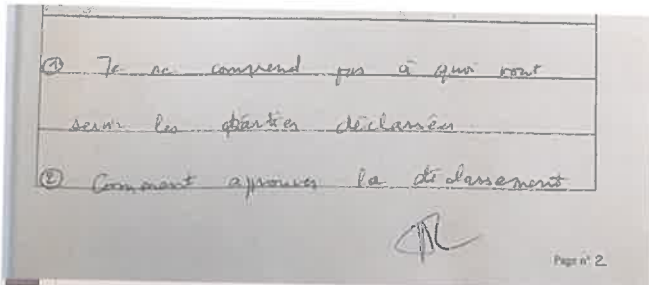 ① Je ne comprend pas à quoi vont
servir les parties déclassées
② Comment approuver le déclassement
Page n° 2